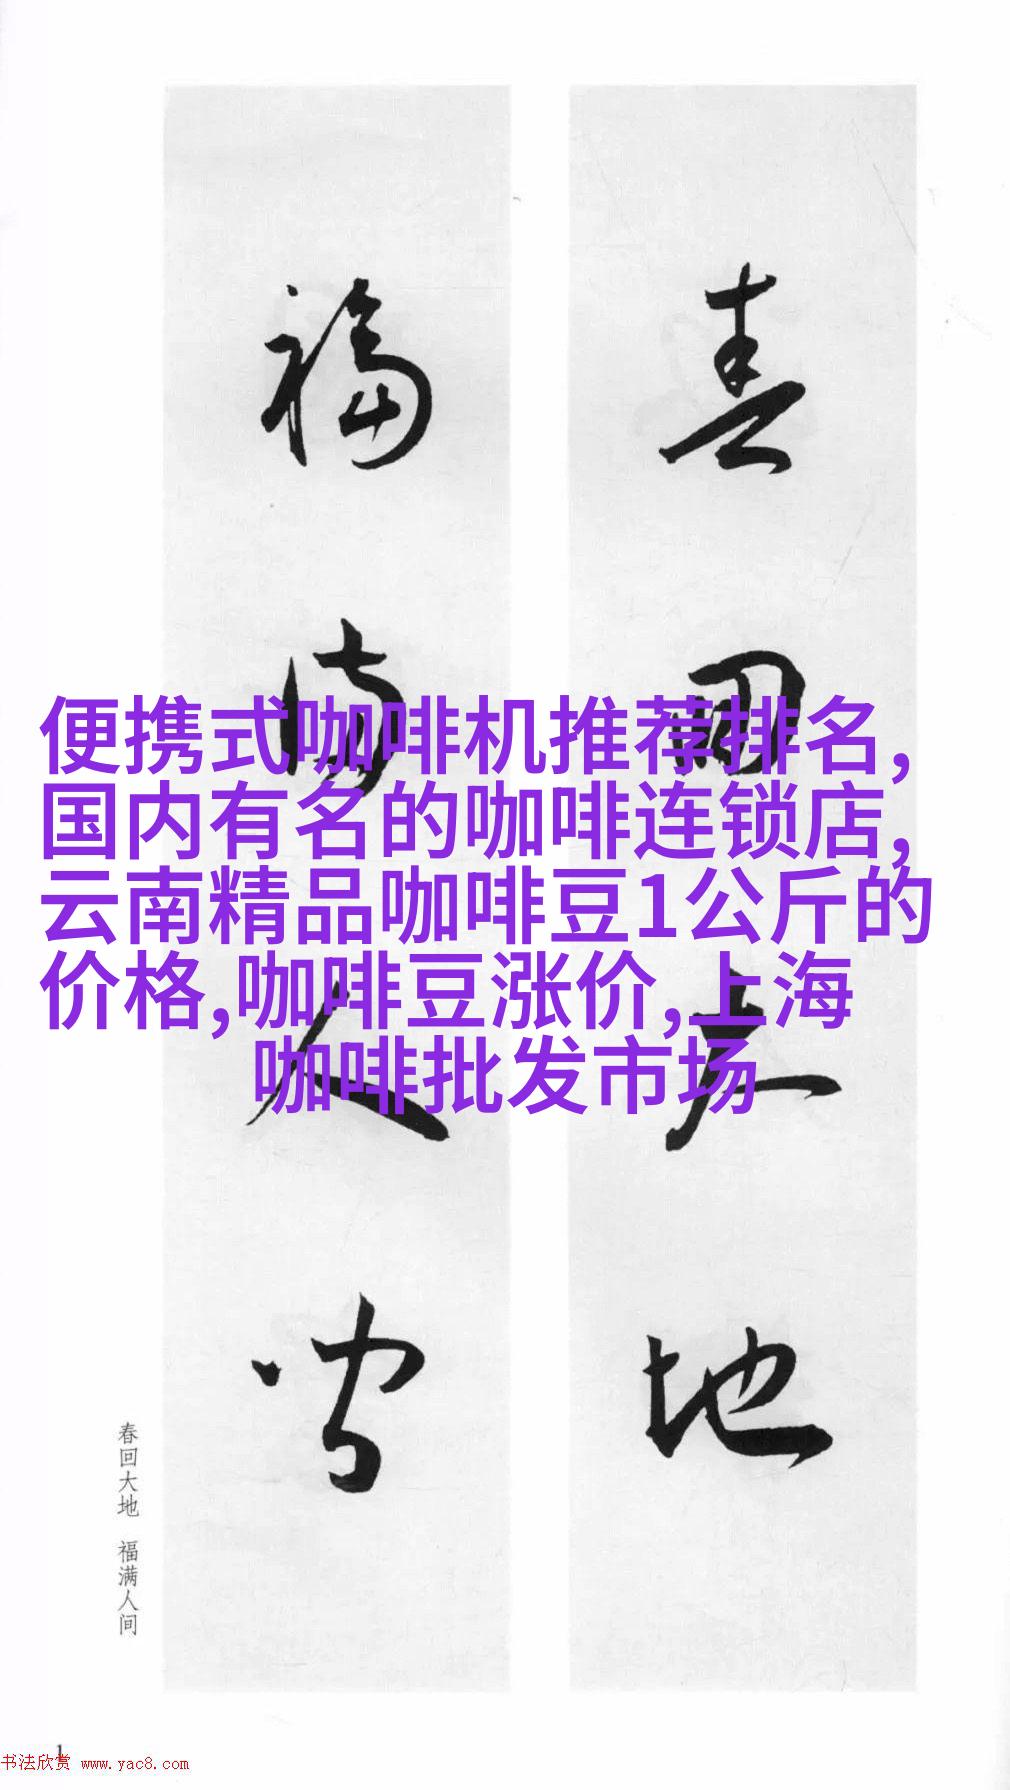 春回大地
福满人间
便携式咖啡机推荐排名,
国内有名的咖啡连锁店,
云南精品咖啡豆1公斤的
价格,咖啡豆涨价,上海
咖啡批发市场
春回大地 福满人间
1
书法欣赏 www.yac8.com